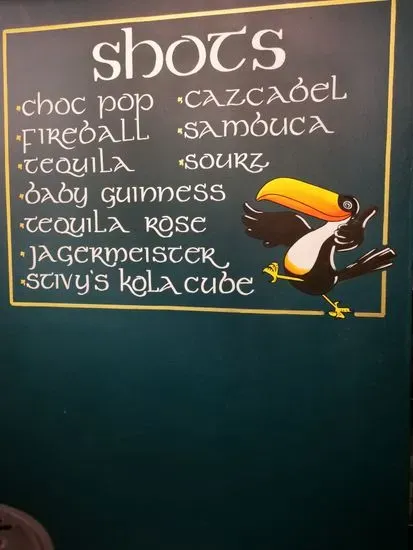 Shots
Choc Pop
Fireball
Tequila
Baby Guinness
Tequila Rose
Jagermeister
Stivy's Kola Cube
Cazcabel
Sambuca
Sourz